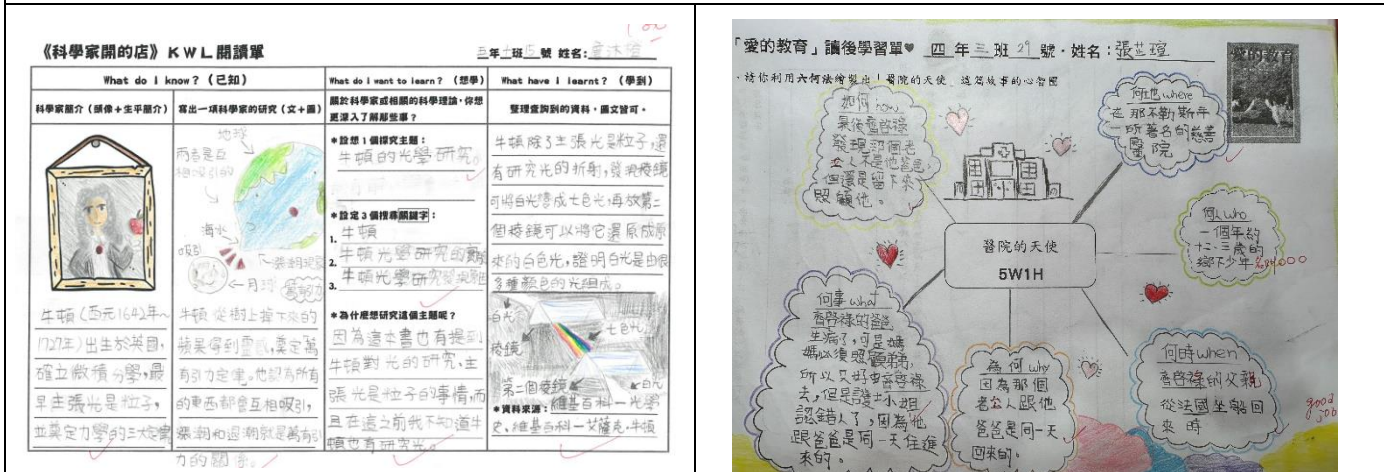 《科學家開的店》KWL閱讀單
三年 班 號 姓名：
What do I know？（已知）
What do I want to learn？（想學）
What have I learnt？（學到）
科學家簡介（頭像＋生平簡介）
寫出一項科學家的研究（文＋圖）
關於科學家或相關的科學理論，你想
更深入了解那些事？
整理查詢到的資料，圖文皆可。
地球
兩者是互
相吸引的
海水
吸引
月球
牛頓（西元1642年～
1727年）出生於英國，
確立微積分學，最
早主張光是粒子，
並奠定力學的三大定律
牛頓從樹上掉下來的
蘋果得到靈感，奠定萬
有引力定律。他認為所有
的東西都會互相吸引，
漲潮和退潮就是萬有引
力的關係。
＊設想1個探究主題：
牛頓的光學研究。
＊設定3個搜尋關鍵字：
1. 牛頓
2. 牛頓光學研究的
3. 牛頓光學研究
＊為什麼想研究這個主題呢？
因為這本書也有提到
牛頓對光的研究，主
張光是粒子的事情，而
且在這之前我不知道牛
頓也有研究光。
牛頓除了主張光是粒子，還
有研究光的折射，發現稜鏡
可將白光變成七色光，再放第二
個稜鏡可以將它還原成原
來的白色光，證明白光是由很
多種顏色的光組成。
白光
稜鏡
七色光
第二個稜鏡
白光
＊資料來源：維基百科－光學
史、維基百科－艾薩克·牛頓
「愛的教育」讀後學習單♥ 四年三班29號·姓名：張芷瑄
愛的教育
、請你利用六何法繪製出「醫院的天使」這篇故事的心智圖
如何 how
最後齊啓祿
發現那個老
人不是他爸爸，
但還是留下來
照顧他。
何地 where
在那不勒斯
一所著名的慈善
醫院
何人 who
一個年約
十二、三歲的
鄉下少年
醫院的天使
5W1H
何事 what
齊啓祿的爸爸
生病了，可是媽
媽必須照顧弟弟，
所以只好由齊啓祿
去，但是護士小姐
認錯人了，因為他
跟爸爸是同一天住進
來的。
為何 why
因為那個
老人跟他
爸爸是同一天
回來的。
何時 when
齊啓祿的父親
從法國坐船回
來時
good
job